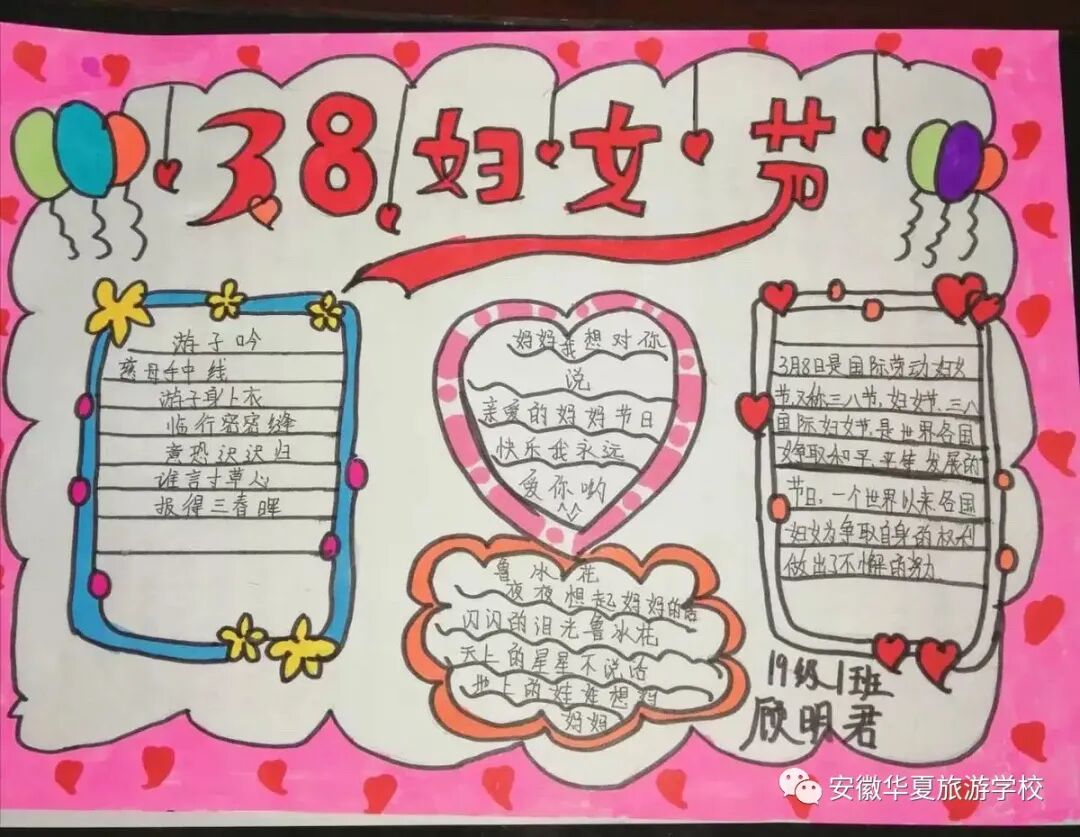 38妇女节
游子吟
慈母手中线
游子身上衣
临行密密缝
意恐迟迟归
谁言寸草心
报得三春晖
妈妈我想对你
说
亲爱的妈妈节日
快乐我永远
爱你哟
鲁冰花
夜夜想起妈妈的话
闪闪的泪光鲁冰花
天上的星星不说话
地上的娃娃想妈
妈妈
3月8日是国际劳动妇女
节又称三八节,妇女节,三八
国际妇女节.是世界各国
争取和平、平等发展的
节日.一个世界以来.各国
妇女为争取自身的权利
做出了不懈的努力
19级1班
顾明君
安徽华夏旅游学校